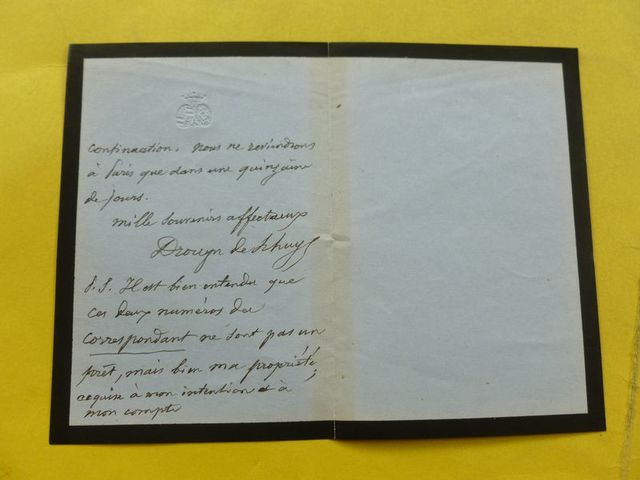 continuation. Nous ne reviendrons
à Paris que dans une quinzaine
de jours.
mille souvenirs affectueux
Drouyn de Lhuys
P.S. Il est bien entendu que
ces deux numéros du
correspondant ne sont pas un
prêt, mais bien ma propriété
acquise à mon intention et à
mon compte